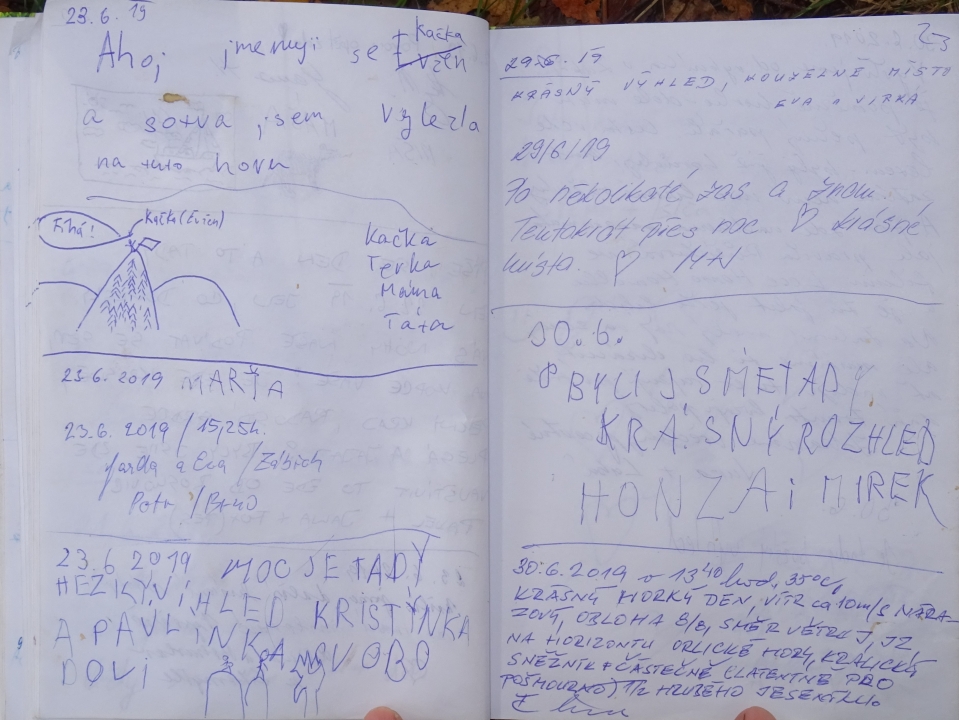 23.6.19
Ahoj jmenuji se Kačka
a sotva jsem vylezla
na tuto horu
Fíhá!
Kačka (Evžen)
Kačka
Terka
Máma
Táta
23.6.2019 MARŤA
23.6.2019/15,25h.
Jarda a Eva /Zábřeh
Petr /Brno
23.6 2019 MOC JE TADY
HEZKÝ VÍHLED KRISTÝNKA
A PAVLÍNKA SVOBO
DOVI
23
29.6.19
KRÁSNÝ VÝHLED, KOUZELNÉ MÍSTO
EVA a MIRKA
29/6/19
Po několikáté zas a znou.
Tentokrát přes noc ♡ krásné
místa. ♡ MN
30.6.
BYLI JSME TADY
KRÁSNÝ ROZHLED
HONZA i MIREK
30.6.2019 v 13⁴⁰ hod, 35°C,
KRÁSNÝ HORKÝ DEN, VÍTR ca 10m/s NÁRA-
ZOVÝ, OBLOHA 8/8, SMĚR VĚTRU J, JZ,
NA HORIZONTU ORLICKÉ HORY, KRÁLICKÝ
SNĚŽNÍK + ČÁSTEČNĚ (LATENTNĚ PRO
POŠMOURNO) 1/2 HRUBÉHO JESENÍKU